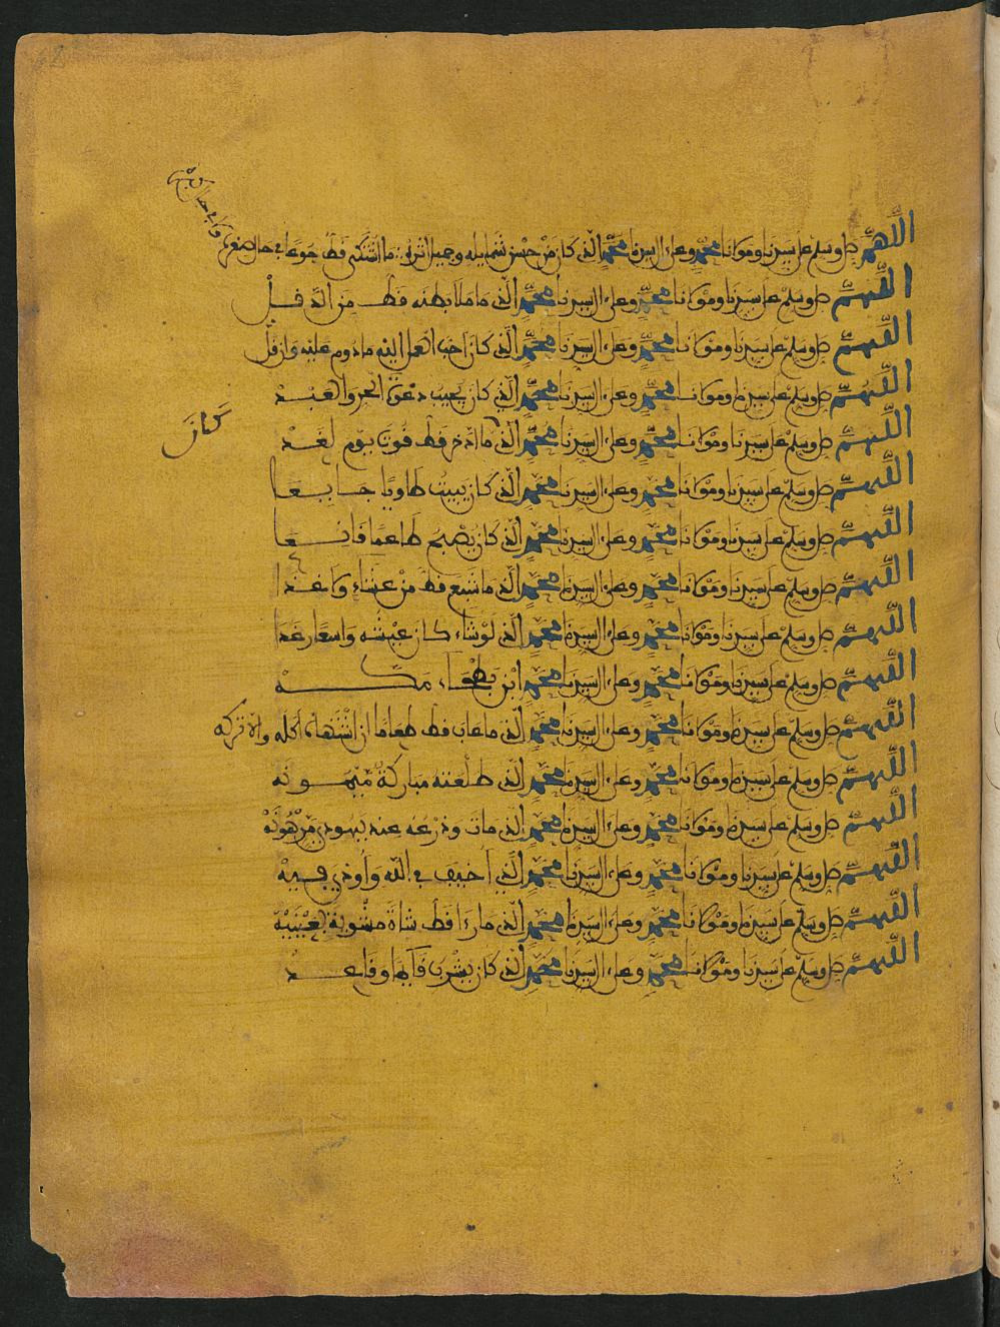 اللهم صل وسلم على سيدنا ومولانا محمد وعلى ءال سيدنا محمد الذي كان من حسن شمايله وجميل اثره ما اشتكى قط جوعا في حال صغره ولا في حال كبره
اللهم صل وسلم على سيدنا ومولانا محمد وعلى ءال سيدنا محمد الذي ما ملأ بطنه قط من الدقل
اللهم صل وسلم على سيدنا ومولانا محمد وعلى ءال سيدنا محمد الذي كان احب العمل اليه ما دووم عليه وان قل
اللهم صل وسلم على سيدنا ومولانا محمد وعلى ءال سيدنا محمد الذي كان يجيب دعوة الحر والعبد
اللهم صل وسلم على سيدنا ومولانا محمد وعلى ءال سيدنا محمد الذي ما ادخر قط قوت يوم لغد
اللهم صل وسلم على سيدنا ومولانا محمد وعلى ءال سيدنا محمد الذي كان يبيت طاويا جايعا
اللهم صل وسلم على سيدنا ومولانا محمد وعلى ءال سيدنا محمد الذي كان يصبح طاعما قانعا
اللهم صل وسلم على سيدنا ومولانا محمد وعلى ءال سيدنا محمد الذي ما شبع قط من عشاء ولا غدا
اللهم صل وسلم على سيدنا ومولانا محمد وعلى ءال سيدنا محمد الذي لو شاء كان عيشه واسعا رغدا
اللهم صل وسلم على سيدنا ومولانا محمد وعلى ءال سيدنا محمد ابن بطحاء مكه
اللهم صل وسلم على سيدنا ومولانا محمد وعلى ءال سيدنا محمد الذي ما عاب قط طعاما ان اشتهاه اكله والا تركه
اللهم صل وسلم على سيدنا ومولانا محمد وعلى ءال سيدنا محمد الذي طلعته مباركة ميمونه
اللهم صل وسلم على سيدنا ومولانا محمد وعلى ءال سيدنا محمد الذي مات ودرعه عند يهودي مرهونة
اللهم صل وسلم على سيدنا ومولانا محمد وعلى ءال سيدنا محمد الذي اخيف في الله واوذي فيه
اللهم صل وسلم على سيدنا ومولانا محمد وعلى ءال سيدنا محمد الذي ما رءا قط شاة مشوية بعينيه
اللهم صل وسلم على سيدنا ومولانا محمد وعلى ءال سيدنا محمد الذي كان يشرب قايما وقاعد
كان